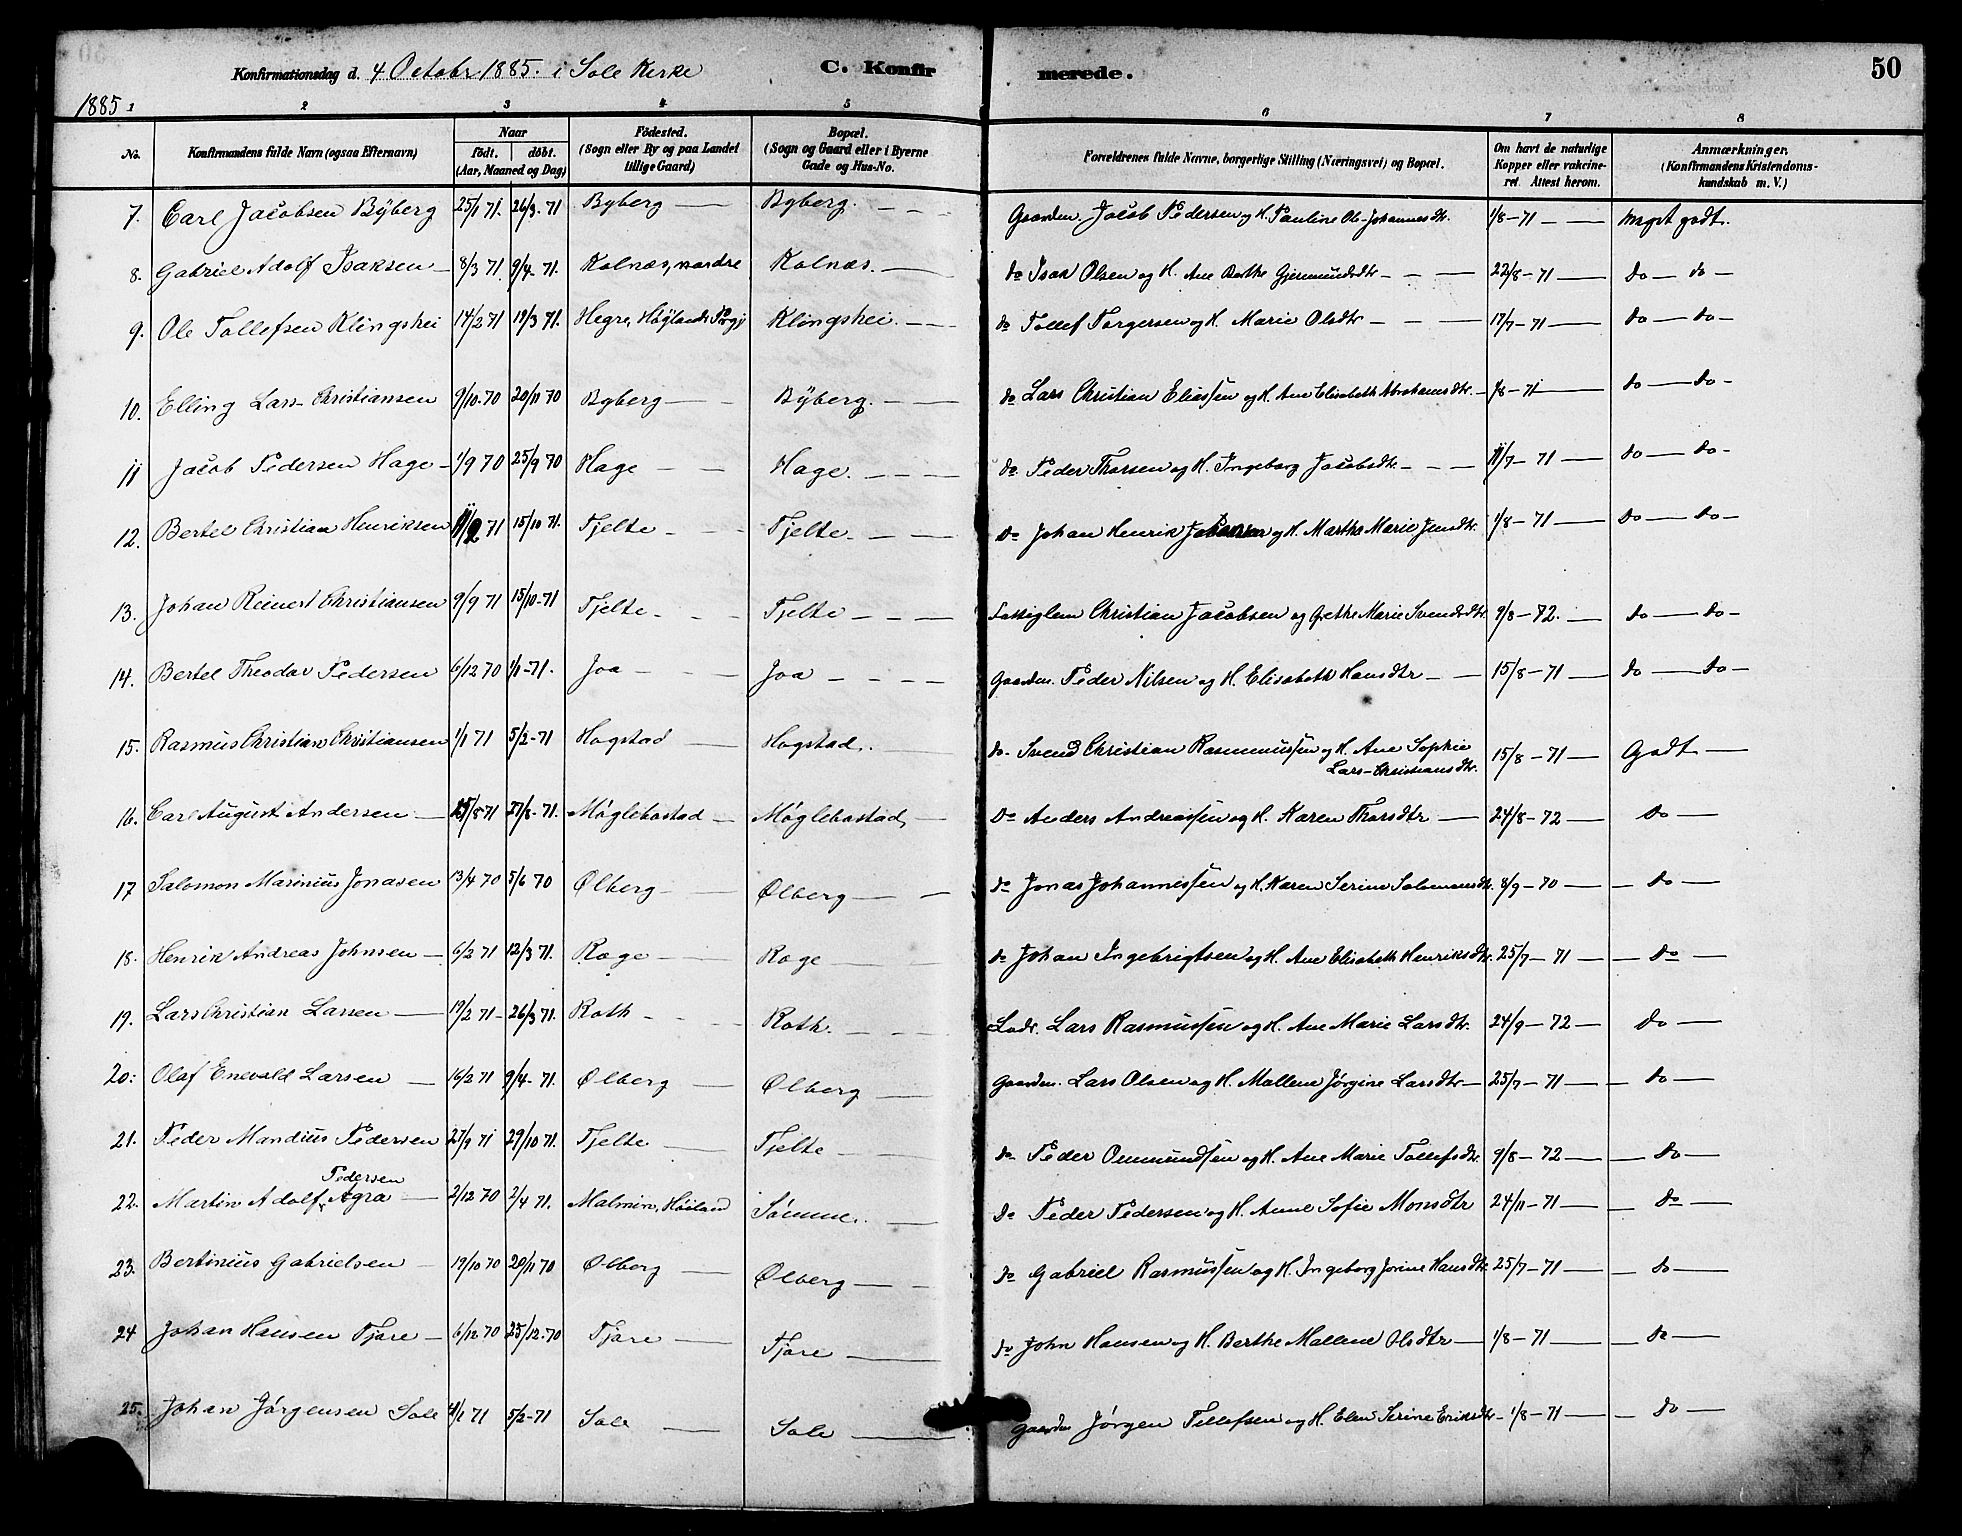 Konfirmationsdag d. 4 Octobr 1885. i Sole Kirke C. Konfirmerede. 50
1885
1 2 3 4 5 6 7 8
No. Konfirmandens fulde Navn (ogsaa Efternavn) Naar födt. döbt. (Aar, Maaned og Dag) Födested. (Sogn eller By og paa Landet tillige Gaard) Bopæl. (Sogn og Gaard eller i Byerne Gade og Hus-No. Forældrenes fulde Navne, borgerlige Stilling (Næringsvei) og Bopæl. Om havt de naturlige Kopper eller vakcineret. Attest herom. Anmærkninger. (Konfirmandens Kristendomskundskab m. V.)
7. Carl Jacobsen Byberg 25/1 71. 26/3. 71 Byberg — Byberg. — Gaardm. Jacob Pedersen og H. Pauline Ole-Johannesdtr. 1/8 – 71 — Meget godt.
8. Gabriel Adolf Isaksen — 8/3 71. 9/4. 71. Kolnæs, nordre Kolnæs. — do Isak Olsen og H. Ane Berthe Gjermundsdtr — 22/8 – 71 — do — do —
9. Ole Tollefsen Klingshei 14/2 71 19/3 71. Hegre, Höylands Prgj Klingshei. — do Tollef Torgersen og H. Marie Olsdtr — 17/7 – 71 — do — do —
10. Elling Lars-Christiansen 9/10. 70 20/11 70 Byberg — Byberg. — do Lars Christian Eliassen og H. Ane Elisabeth Abrahamsdtr. — /8 – 71 — do — do —
11 Jacob Pedersen Hage — 1/9 70 25/9 70 Hage — Hage. — do Peder Thorsen og H. Ingeborg Jacobsdtr. — 11/7 – 71 — do — do —
12. Bertel Christian Henriksen 71 15/10 71. Tjelte — Tjelte — do Johan Henrik og H. Marthe Marie Jensdtr. 1/8 – 71 — do — do —
13. Johan Reinert Christiansen 9/9 71 15/10–71 Tjelte — Tjelte — Fattiglem Christian Jacobsen og Grethe Marie Svendsdtr. 9/8 – 72. — do — do —
14. Bertel Theodor Pedersen 6/12 70 1/1–71. Joa — Joa — Gaardm. Peder Nilsen og H. Elisabeth Hansdtr — 15/8 – 71 — do — do —
15. Rasmus Christian Christiansen 1/1 71 5/2–71 Hogstad — Hogstad. do. Svend Christian Rasmussen og H. Ane Sophie Lars-Christiansdtr. 15/8 – 71 — Godt —
16. Carl August Andersen — /8 71 27/8–71. Möglebostad — Möglebostad, — do Anders Andreassen og H. Karen Thorsdtr — 24/8 – 72 — do —
17 Salomon Marinius Jonasen 13/4 70 5/6 70 Ølberg — Ølberg — do Jonas Johannessen og H. Karen Serine Salomonsdtr. 8/9 – 70 — do —
18. Henrik Andreas Johnsen — 6/2 71 12/3 71. Roge — Roge — do Johan Ingebrigtsen og H. Ane Elisabeth Henriksdtr. 25/7 – 71 — do —
19. Lars Christian Larsen — 19/2 71 – 26/3 71. Roth — Roth. — Lodr. Lars Rasmussen og H. Ane Marie Larsdtr. 24/9 – 72 — do —
20: Olaf Enevald Larsen — 16/2 71 9/4–71. Ølberg — Ølberg — Gaardm. Lars Olsen og H. Mallene Jörgine Larsdtr — 25/7 – 71 — do —
21. Peder Mandius Pedersen 27/9 71 29/10 71. Tjelte — Tjelte — do Peder Ommundsen og H. Ane Marie Tollefsdtr. 9/8 – 72 — do —
22. Martin Adolf Pedersen Agra — 2/12 70 2/4 71. Malmin, Höiland Sömme. — do Peder Pedersen og H. Anne Sofie Monsdtr 24/11 – 71 — do —
23. Bertinius Gabrielsen — 19/10 70 20/11 70 Ølberg — Ølberg — do Gabriel Rasmussen og H. Ingeborg Jorine Hansdtr 25/7 – 71 — do —
24 Johan Hansen Tjore — 6/12 70 25/12–70 Tjore — Tjore — do John Hansen og H. Berthe Mallene Olsdtr — 1/8 – 71 — do —
25. Johan Jörgensen Sole /1 71 5/2–71 Sole — Sole — Gaardm Jörgen Tollefsen og H. Elen Serine Eriksdtr — 1/8 – 71 — do —